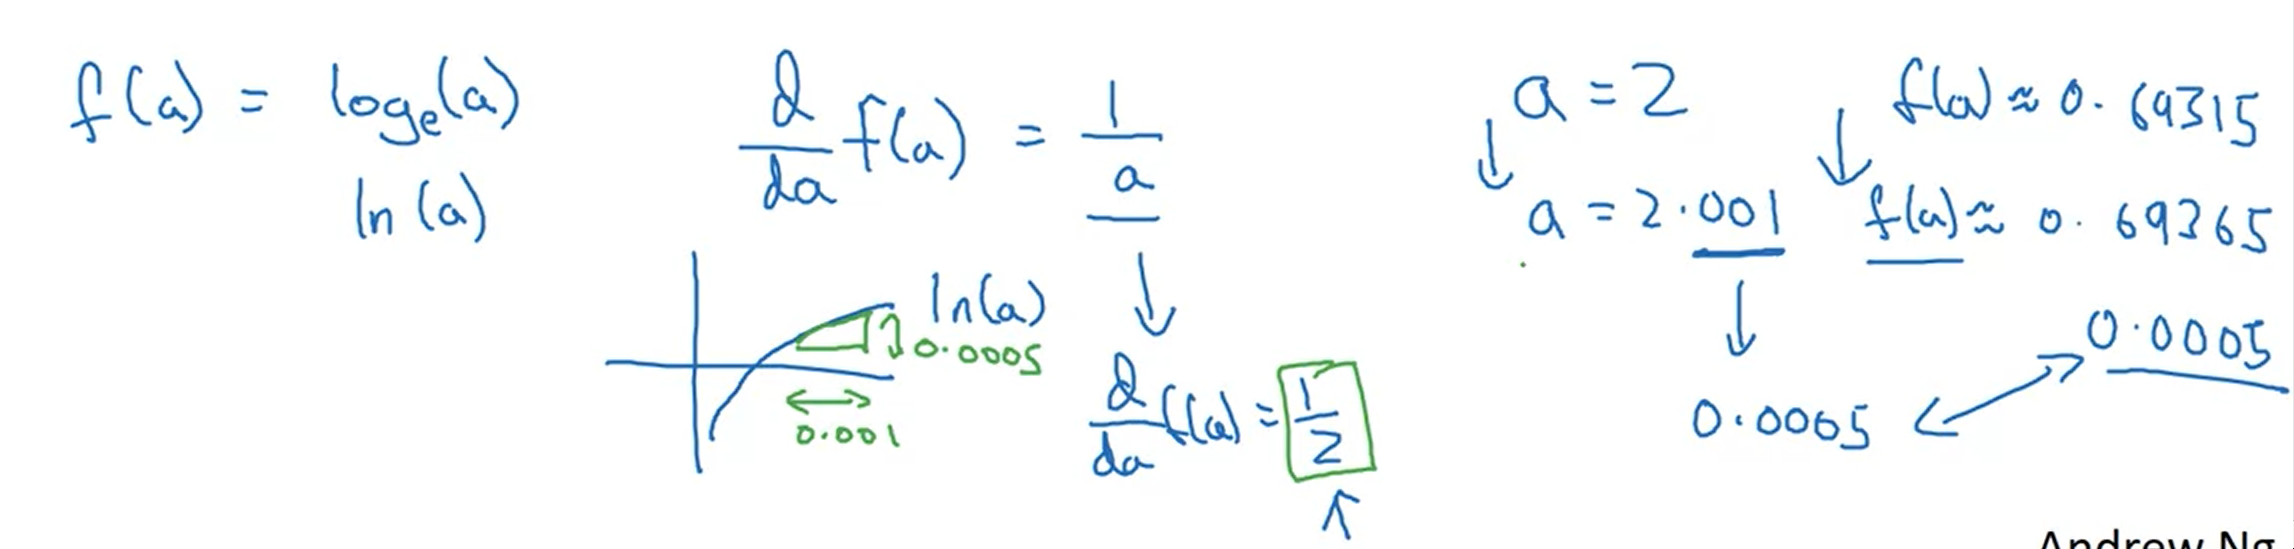 f(a) = logₑ(a)
ln(a)
d/da f(a) = 1/a
ln(a)
0.0005
0.001
d/da f(a) = 1/2
a = 2 f(a) ≈ 0.69315
a = 2.001 f(a) ≈ 0.69365
0.0005
0.0005
Andrew Ng